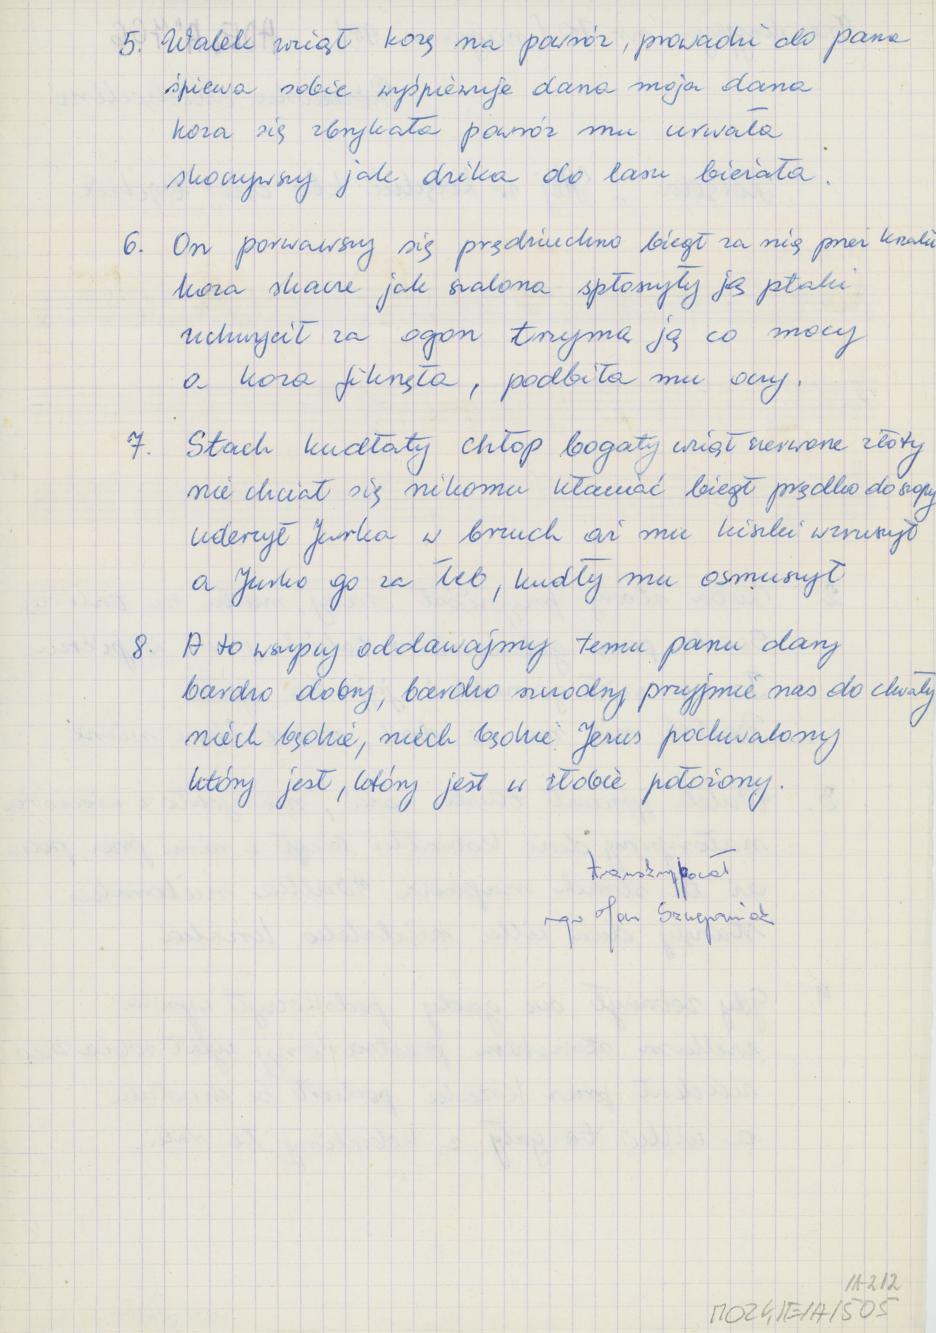 5. Walek wziął kozę na pawróz, prowadzi do pana
śpiewa sobie wyśpiewuje dana moja dana
koza się zbrykała pawróz mu urwała
skoczywszy jak dzika do lasu bieżała.
6. On porwawszy się prędziuchno biegł za nią przez krzaki
koza skacze jak szalona spłoszyły ją ptaki
uchwycił za ogon trzyma ją co mocy
a koza fiknęła, podbiła mu oczy.
7. Stach kudłaty chłop bogaty wziął czerwone złoty
nie chciał się nikomu kłaniać biegł prędko do szopy
uderzył Jurka w brzuch aż mu kiszki wzruszył
a Jurko go za łeb, kudły mu osmuszył
8. A to wszyscy oddawajmy temu panu dary
bardzo dobry, bardzo szczodry, przyjmie nas do chwały
niech będzie, niech będzie Jezus pochwalony
który jest, który jest w żłobie położony.
transkrybował
mgr Jan
11-212